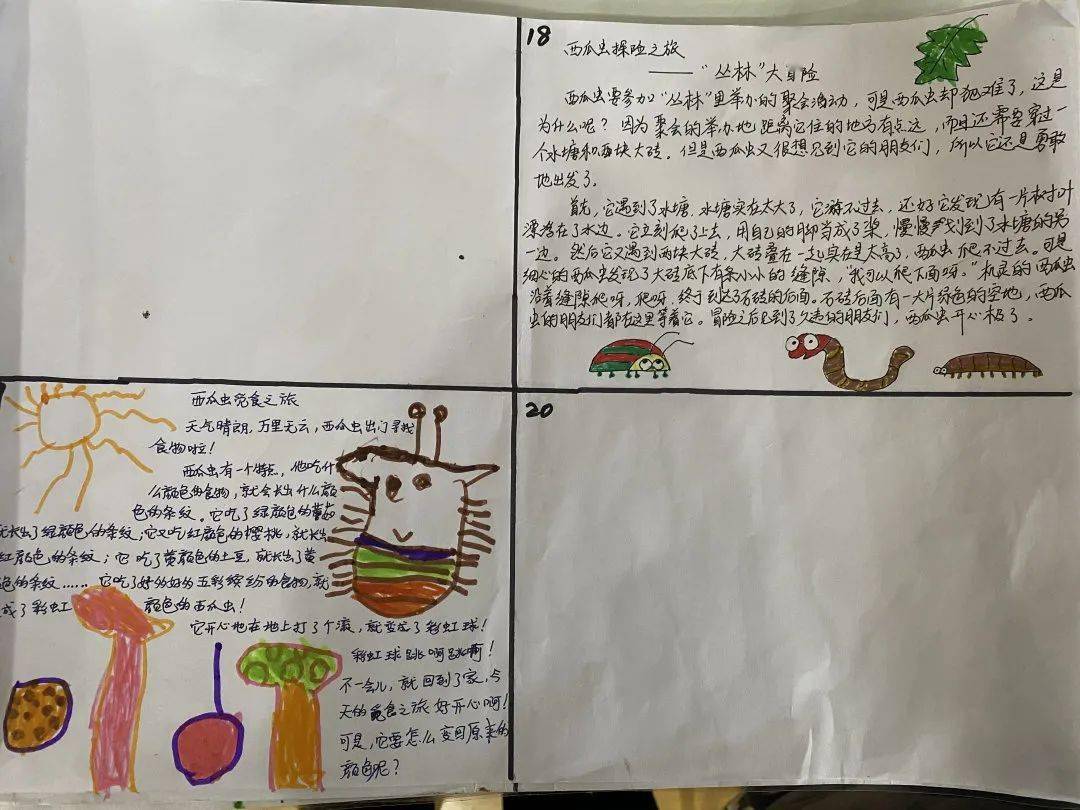 18
西瓜虫探险之旅
——“丛林”大冒险
西瓜虫要参加“丛林”里举办的聚会活动，可是西瓜虫却犯难了，这是
为什么呢？因为聚会的举办地距离它住的地方有点远，而且还需要穿过一
个水塘和两块大砖。但是西瓜虫又很想见到它的朋友们，所以它还是勇敢
地出发了。
首先，它遇到了水塘，水塘实在太大了，它游不过去，还好它发现有一片树叶
漂浮在了水边。它立刻爬了上去，用自己的脚当成了桨，慢慢划到了水塘的另
一边。然后它又遇到两块大砖，大砖叠在一起实在是太高了，西瓜虫爬不过去。可是
细心的西瓜虫发现了大砖底下有条小小的缝隙，“我可以爬下面呀。”机灵的西瓜虫
沿着缝隙爬呀，爬呀，终于到达了石砖的后面。石砖后面有一大片绿色的空地，西瓜
虫的朋友们都在这里等着它。冒险之后见到了久违的朋友们，西瓜虫开心极了。
西瓜虫觅食之旅
天气晴朗，万里无云，西瓜虫出门寻找
食物啦！
西瓜虫有一个特点，他吃什
么颜色的食物，就会长出什么颜
色的条纹。它吃了绿颜色的蘑菇
就长出了绿颜色的条纹；它又吃红颜色的樱桃，就长出
红颜色的条纹；它吃了黄颜色的土豆，就长出了黄
色的条纹……它吃了好的好的五彩缤纷的食物，就
成了彩虹颜色的西瓜虫！
它开心地在地上打了个滚，就变成了彩虹球！
彩虹球跳啊跳啊！
不一会儿，就回到了家，今
天的觅食之旅好开心啊！
可是，它要怎么变回原来的
颜色呢？
20